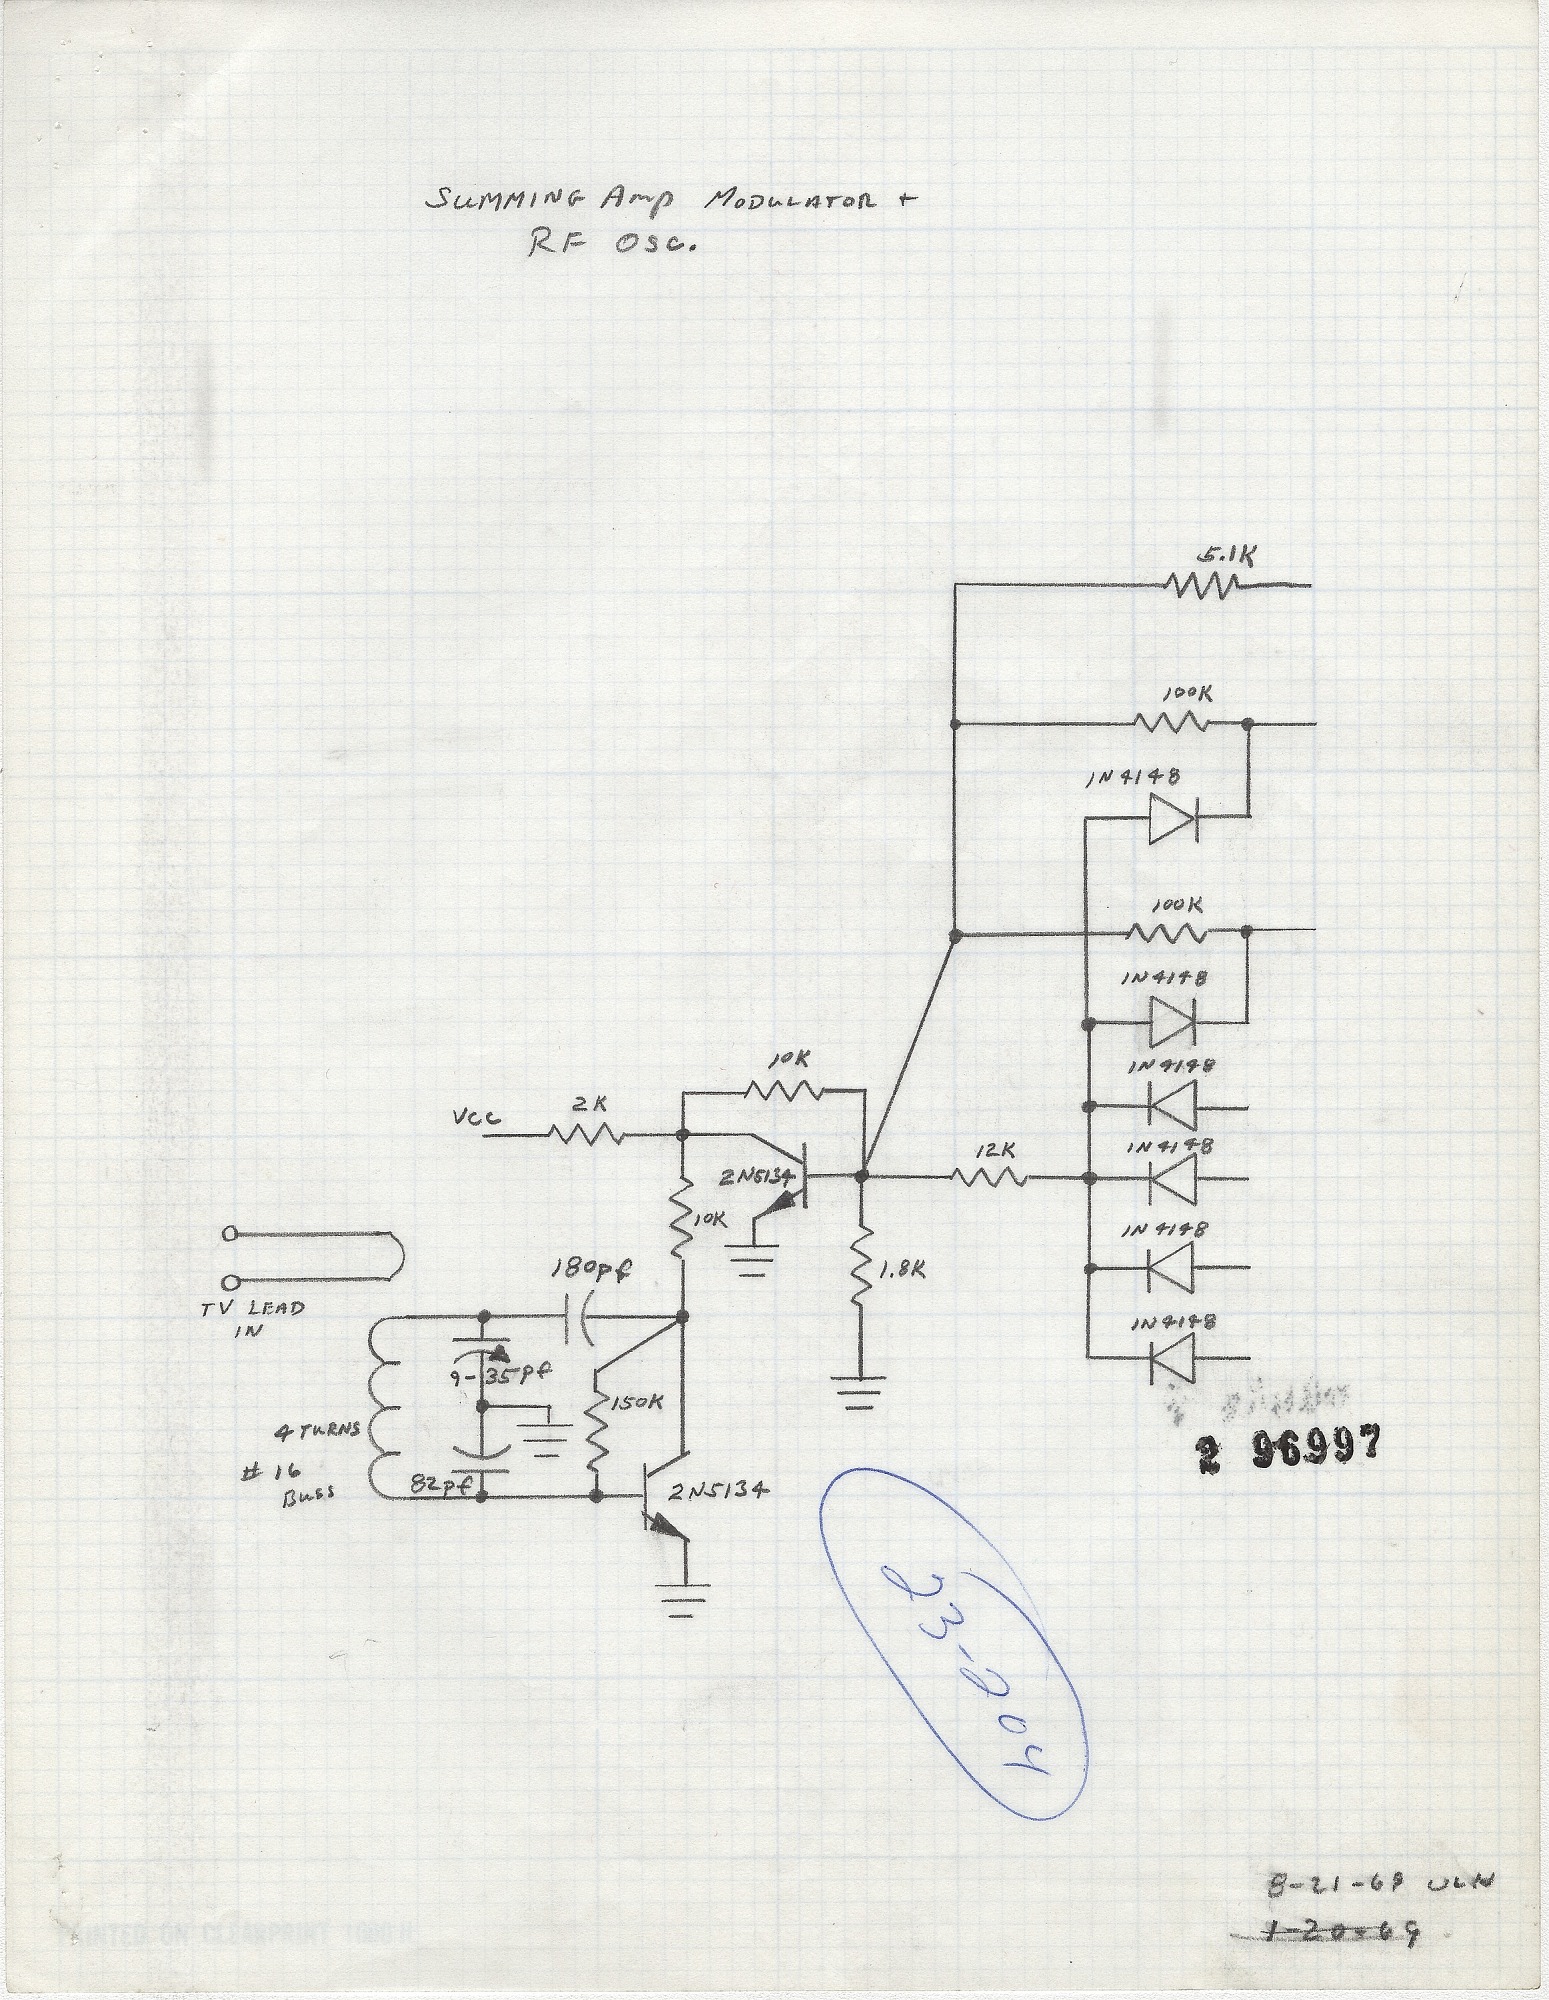 SUMMING Amp MODULATOR +
RF OSC.
5.1K
100K
1N4148
100K
1N4148
1N4148
10K
2K
VCC
1N4148
12K
2N5134
10K
1N4148
1.8K
180pf
TV LEAD
IN
1N4148
9-35pf
150K
4 TURNS
# 16
BUSS
82pf
2N5134
2 96997
23-204
8-21-68
1-20-69
PRINTED ON CLEARPRINT 1000H